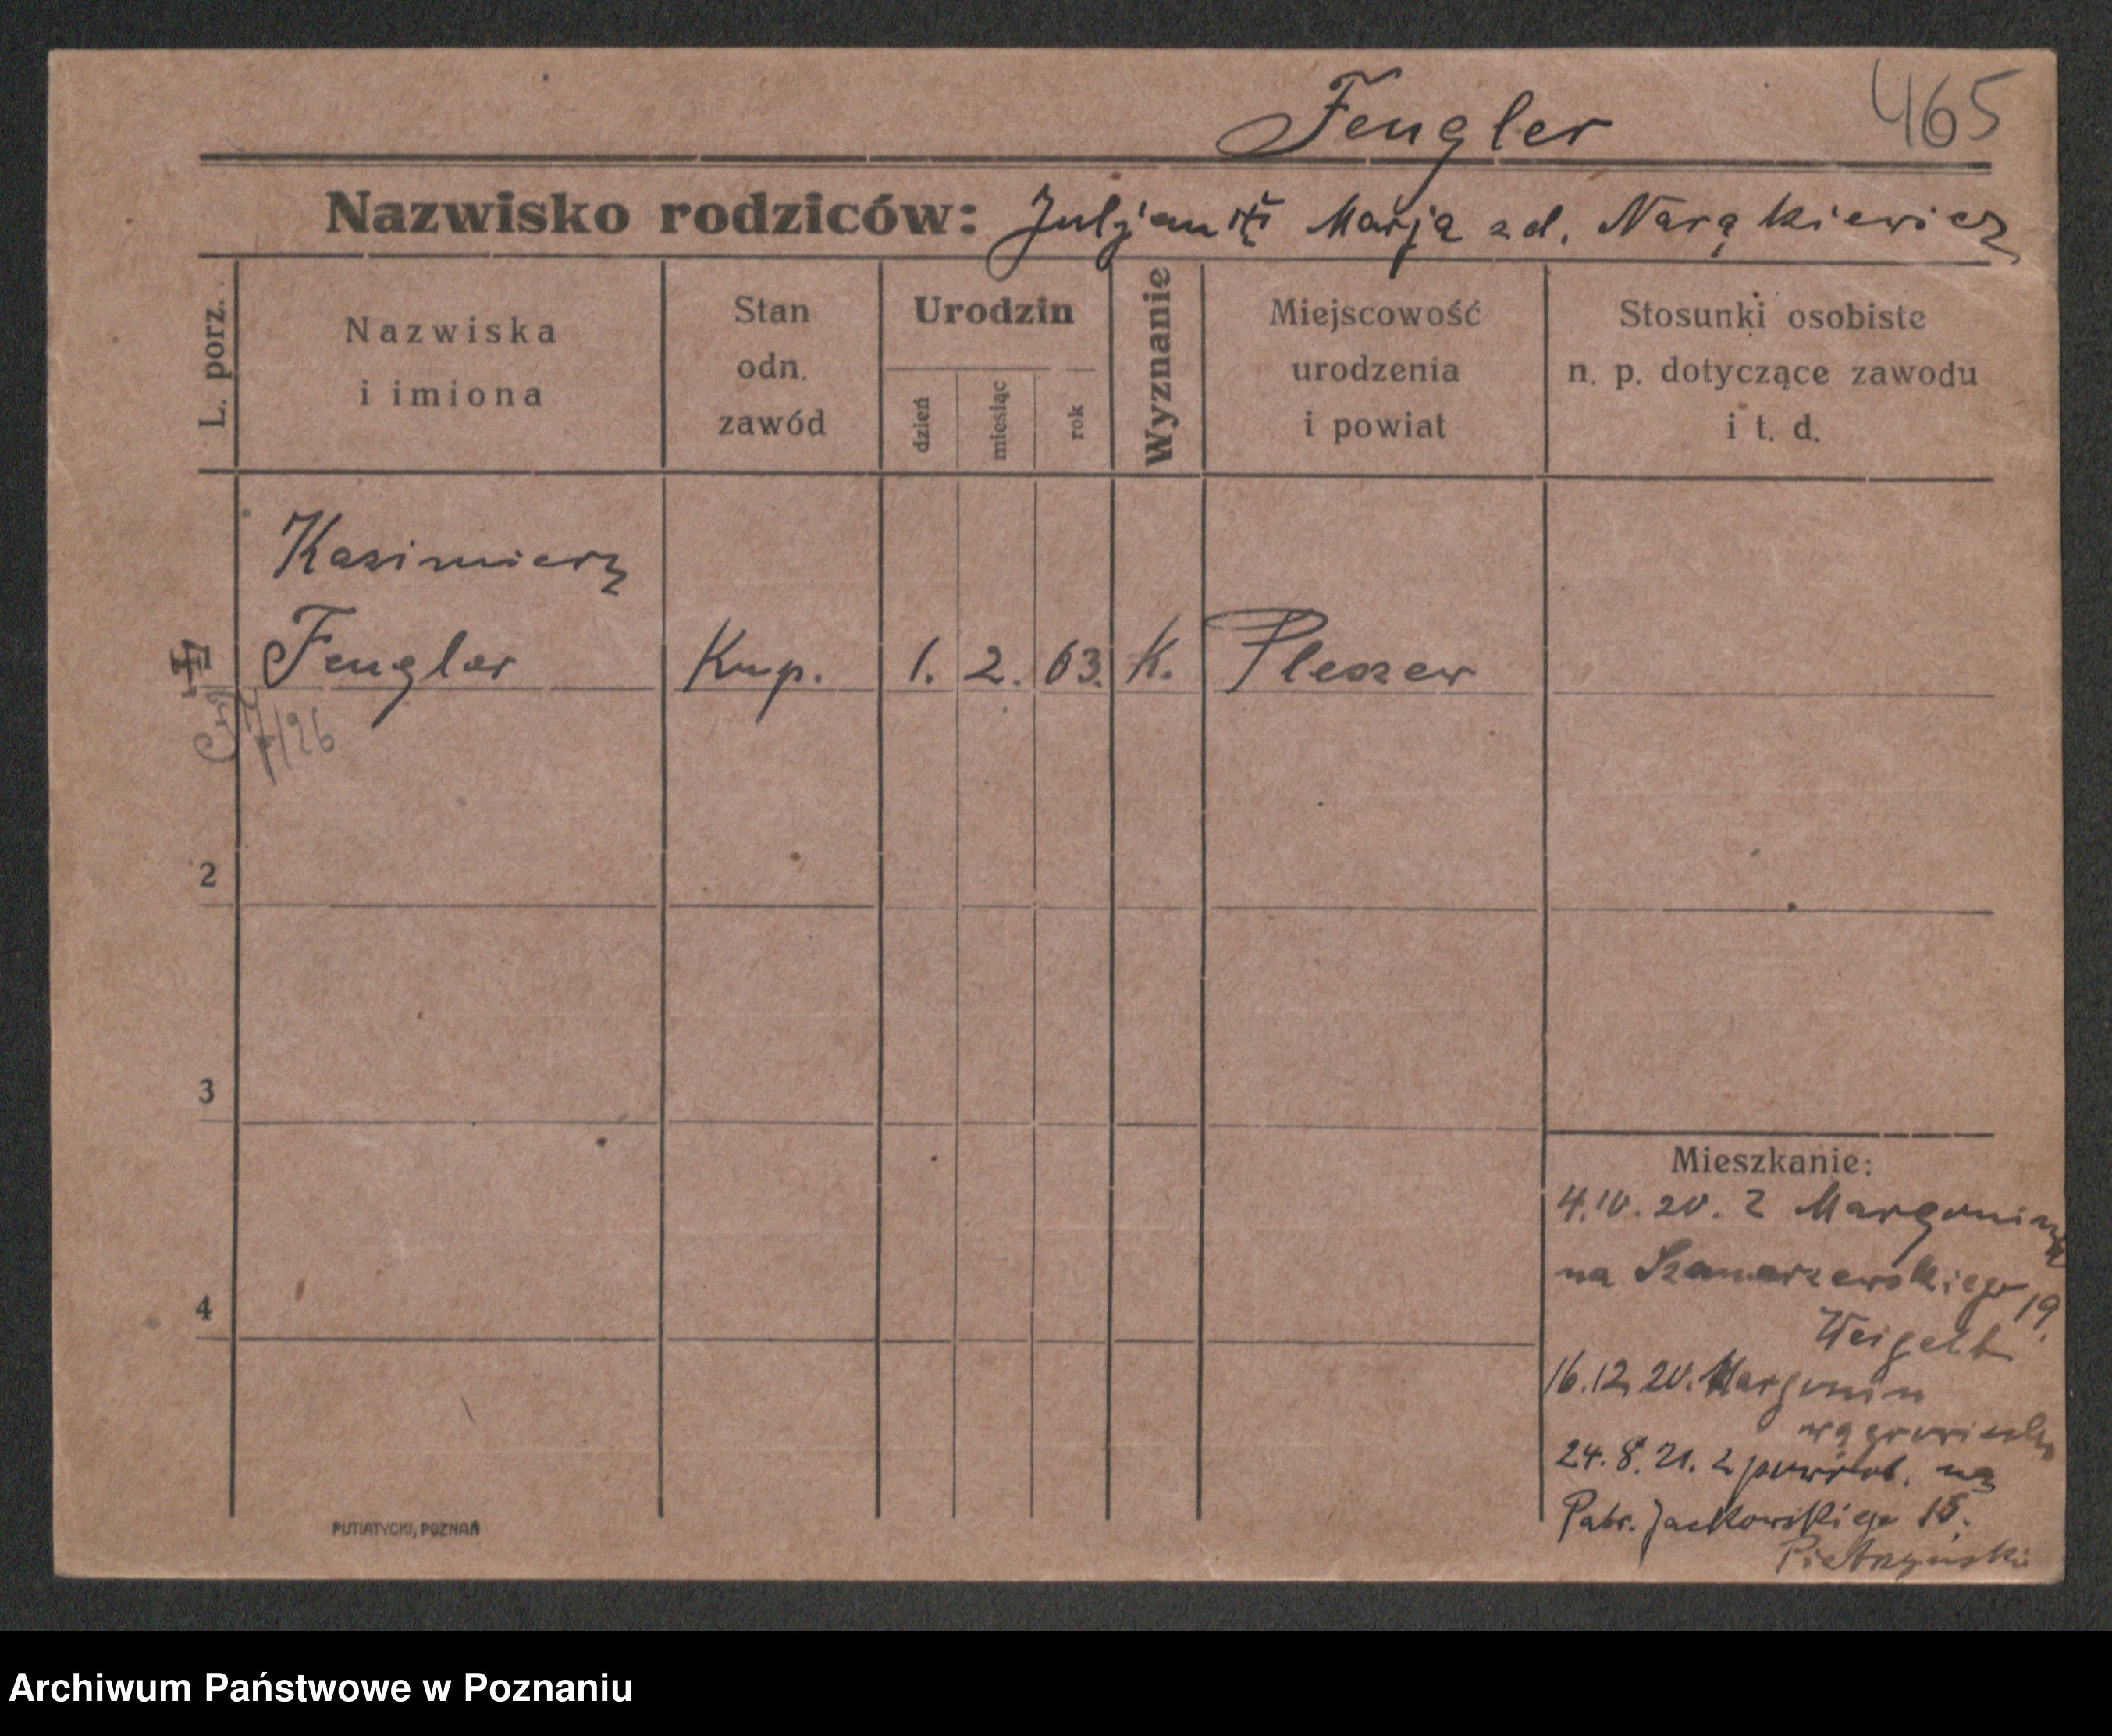 Fengler 465
Nazwisko rodziców: Juljan i Marja zd. Narąkiewicz
L. porz.
Nazwiska
i imiona
Stan
odn.
zawód
Urodzin
dzień
miesiąc
rok
Wyznanie
Miejscowość
urodzenia
i powiat
Stosunki osobiste
n. p. dotyczące zawodu
i t. d.
Kasimierz
Fengler Kup. 1. 2. 63. K. Pleszew
7/26
2
3
4
Mieszkanie:
4.10.20. z Margonina
na Szamarzewskiego 19.
Weigelt
16.12.20. Margonin
24.8.21. z powrot. na
Patr. Jackowskiego 18.
Pietrzyński
PUTIATYCKI, POZNAŃ
Archiwum Państwowe w Poznaniu